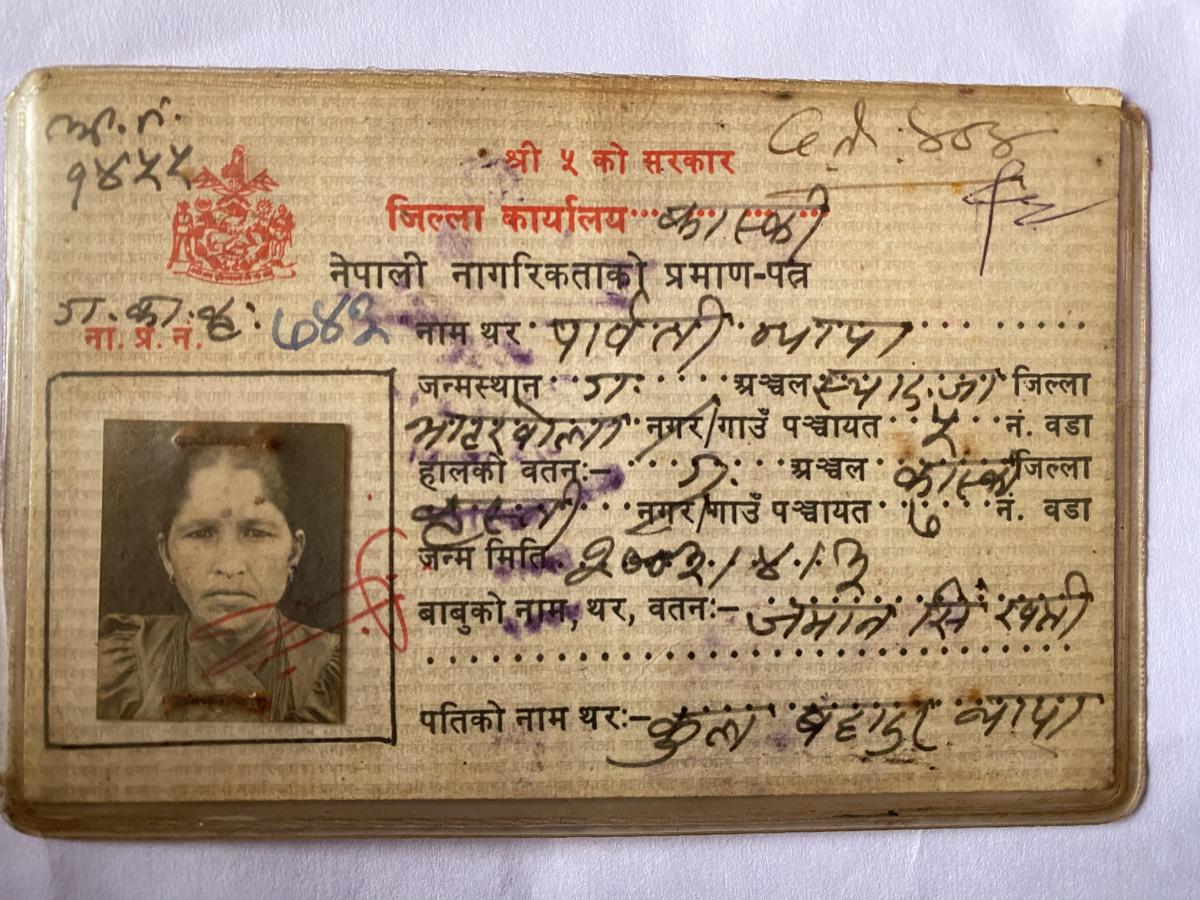 १४५५
नं. ४०४
श्री ५ को सरकार
जिल्ला कार्यालय कास्की
नेपाली नागरिकताको प्रमाण-पत्र
ना. प्र. नं. ७४२
नाम थर पार्वती थापा
जन्मस्थान गः अञ्चल स्याङ्जा जिल्ला
भाटखोला नगर/गाउँ पञ्चायत ५ नं. वडा
हालको वतनः- गः अञ्चल कास्की जिल्ला
नगर/गाउँ पञ्चायत ७ नं. वडा
जन्म मिति २००२।४।३
बाबुको नाम, थर, वतनः- जमान सिं खत्री
पतिको नाम थरः- कुल बहादुर थापा